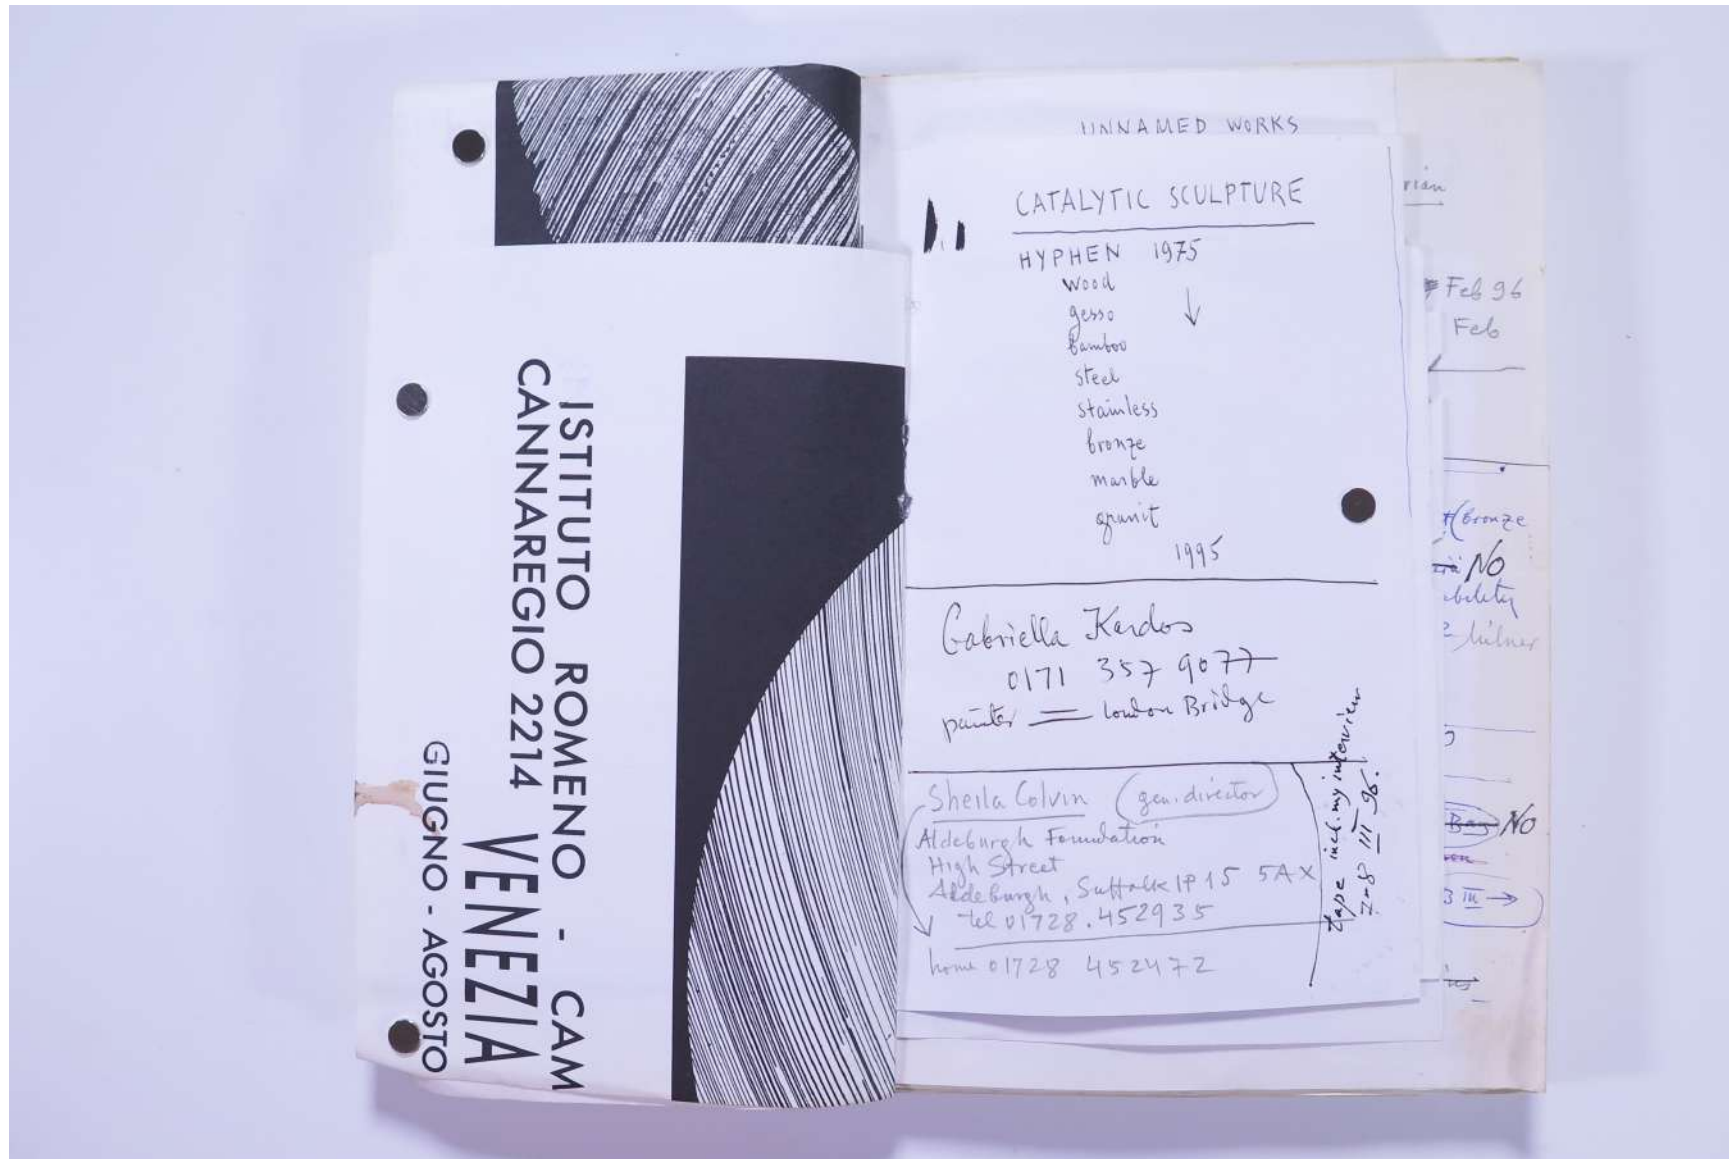 ISTITUTO ROMENO - CAM
CANNAREGIO 2214 VENEZIA
GIUGNO - AGOSTO
UNNAMED WORKS
CATALYTIC SCULPTURE
HYPHEN 1975
wood
gesso
bamboo
steel
stainless
bronze
marble
granit
1995
Gabriella Kardos
0171 357 9077
painter = London Bridge
Sheila Colvin (gen. director)
Aldeburgh Foundation
High Street
Aldeburgh, Suffolk IP15 5AX
tel 01728.452935
home 01728 452472
tape incl. my interview
7-8 III 96.
Feb 96
Feb
bronze
NO
Bag NO
3 III →